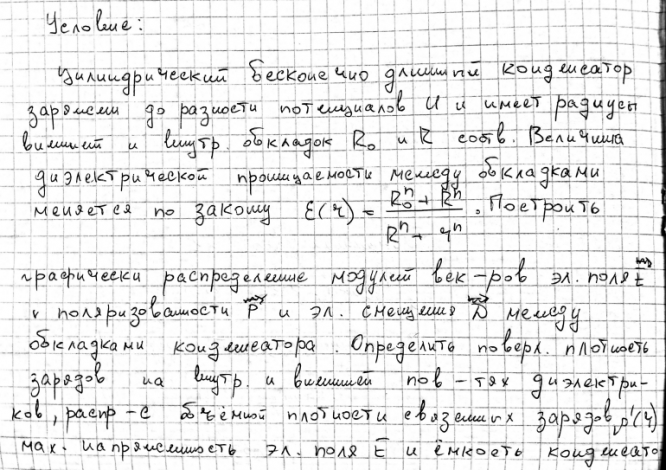 Условие:
Цилиндрический бесконечно длинный конденсатор
заряжен до разности потенциалов U и имеет радиусы
внешней и внутр. обкладок R₀ и R соотв. Величина
диэлектрической проницаемости между обкладками
меняется по закону ε(r) = (R₀ⁿ + Rⁿ)/(Rⁿ + rⁿ). Построить
графически распределение модулей век-ров эл. поля E
и поляризованности P и эл. смещения D между
обкладками конденсатора. Определить поверх. плотность
зарядов на внутр. и внешней пов-тях диэлектри-
ков, распр-е объёмной плотности связанных зарядов ρ'(r)
мах. напряженность эл. поля E и ёмкость конденсато